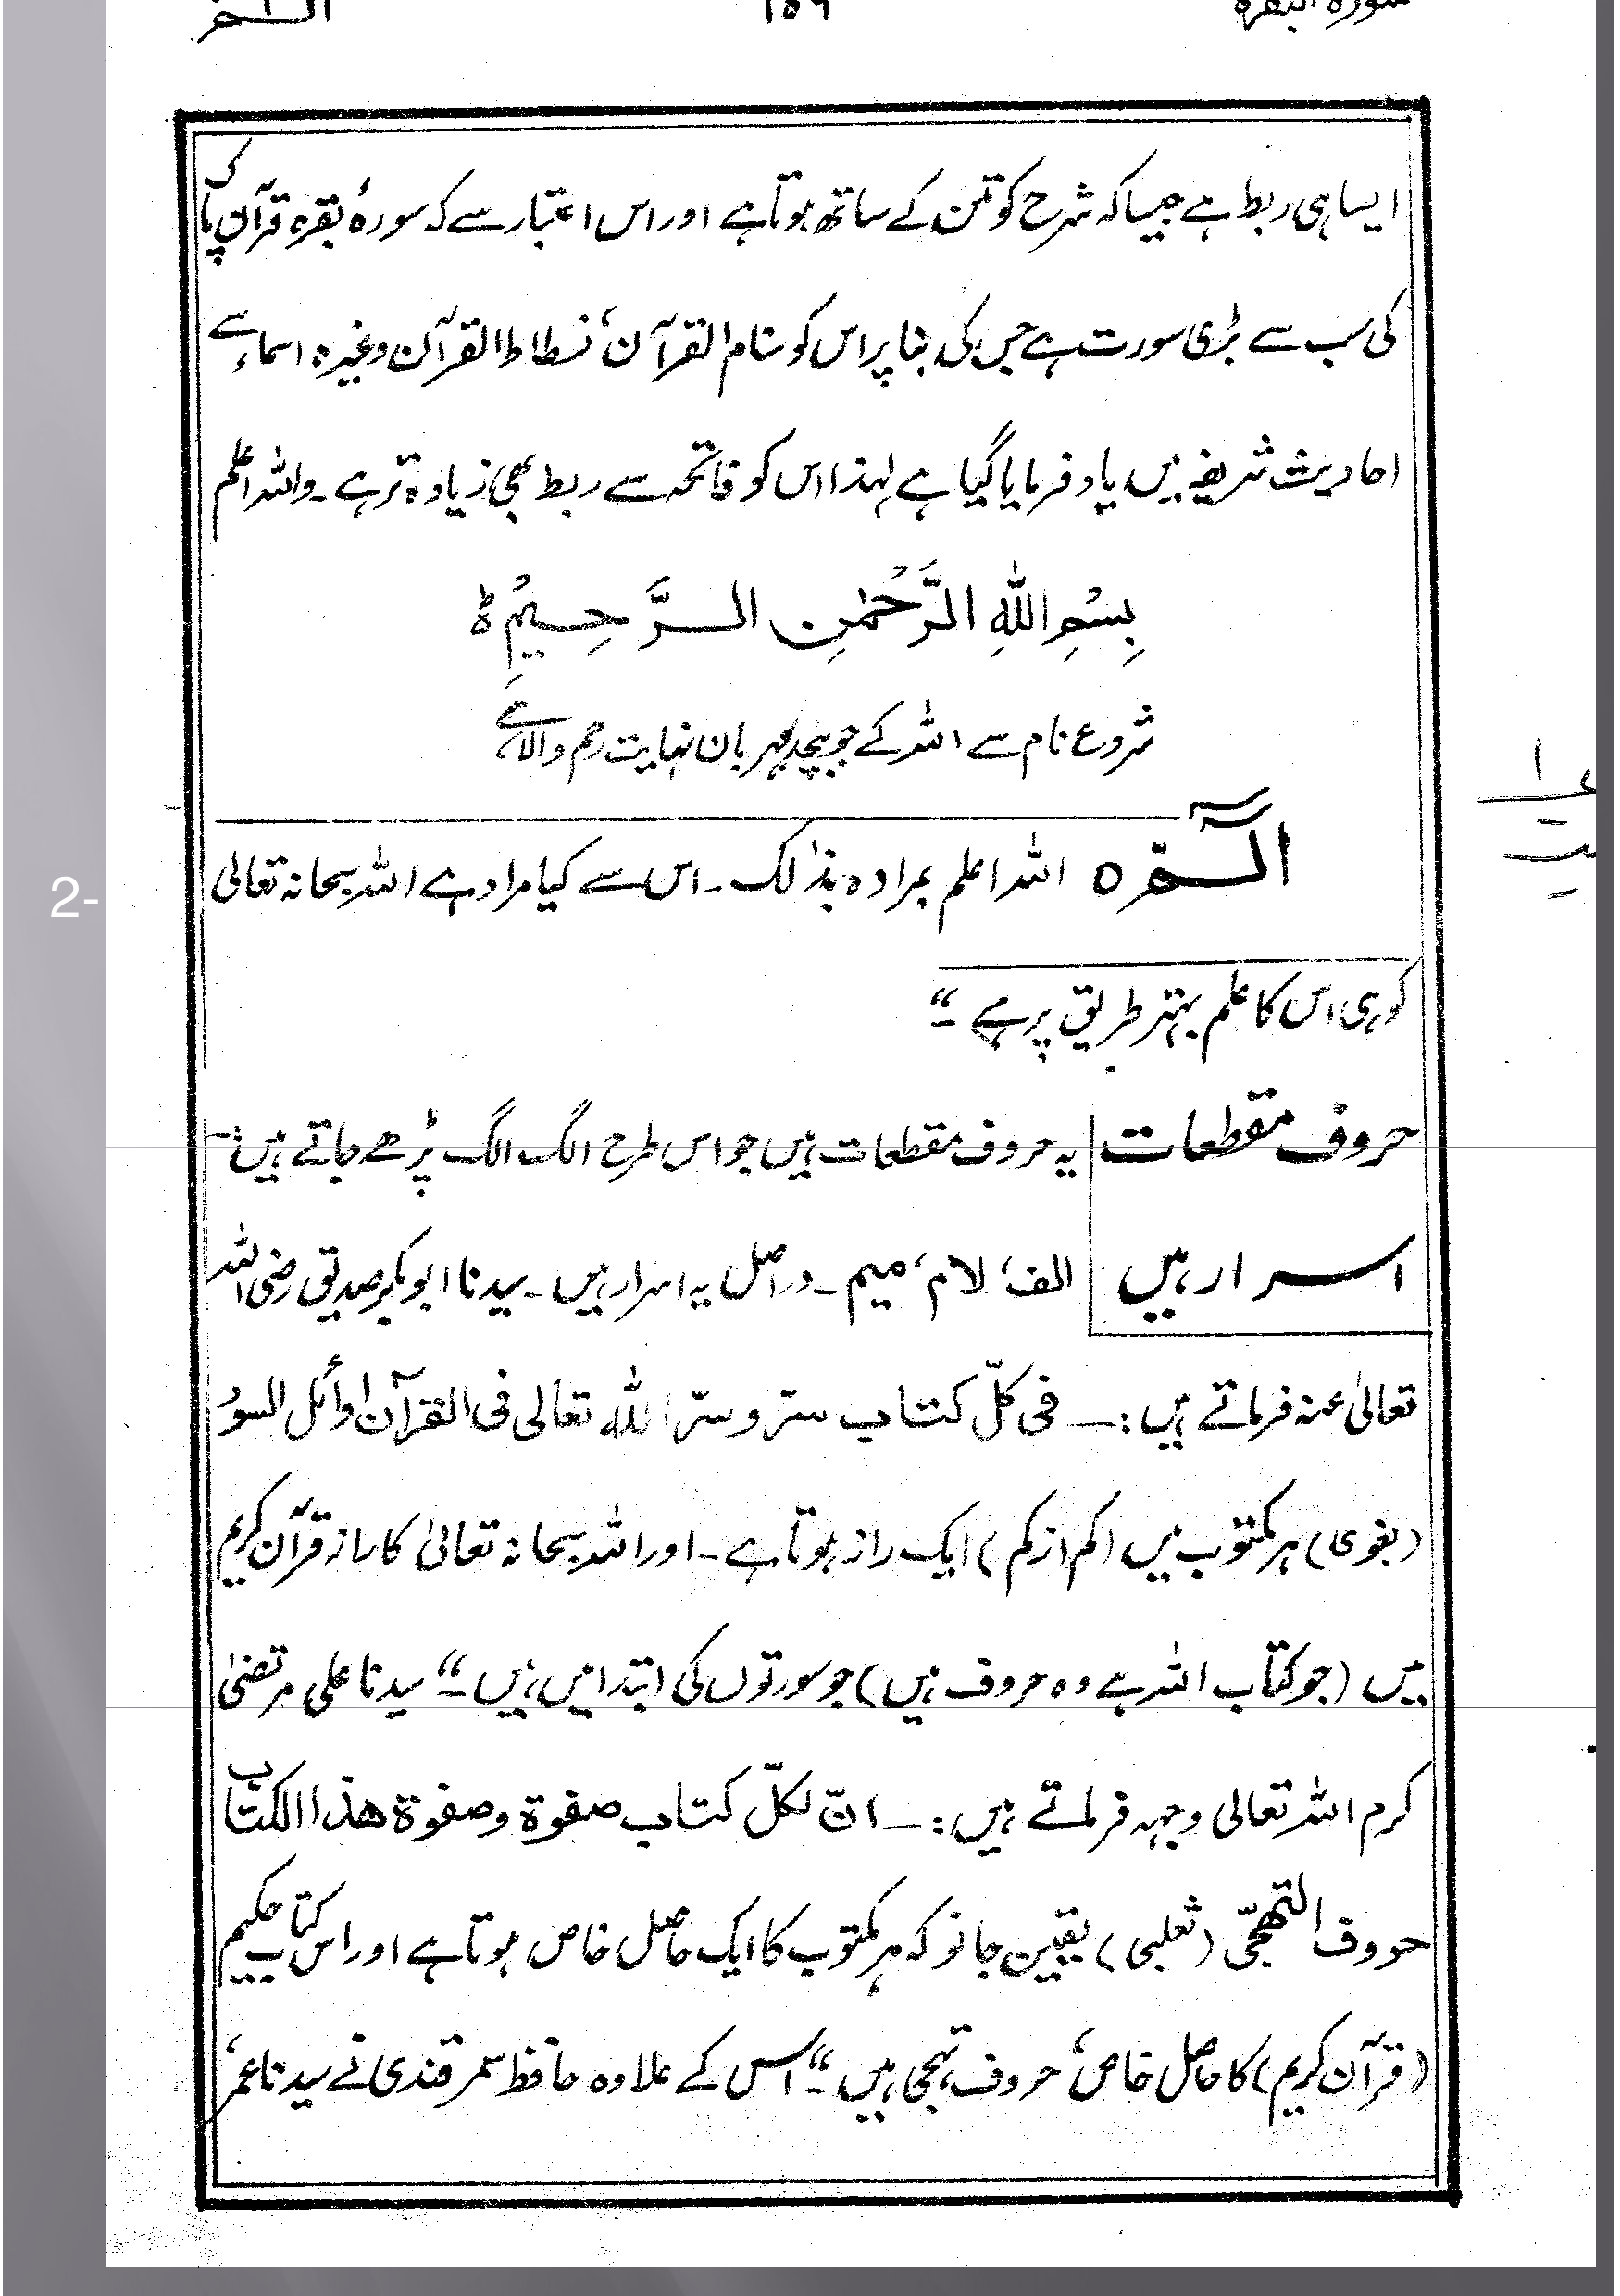 سورة البقرة ۱۵۶ الم
ایسا ہی ربط ہے جیسا کہ شرح کو متن کے ساتھ ہوتا ہے اور اس اعتبار سے کہ سورۂ بقرہ قرآن پاک
کی سب سے بڑی سورت ہے جس کی بنا پر اس کو سنام القرآن، فسطاط القرآن وغیرہ اسماء سے
احادیث شریفہ میں یاد فرمایا گیا ہے لہذا اس کو فاتحہ سے ربط بھی زیادہ تر ہے۔ واللہ اعلم
بِسْمِ اللهِ الرَّحْمٰنِ الرَّحِيْمِ ط
شروع نام سے اللہ کے جو بیحد مہربان نہایت رحم والا ہے
الٓـمّٓ ہ اللہ اعلم بمرادہ بذٰلک۔ اس سے کیا مراد ہے اللہ سبحانہ تعالی
کو ہی اس کا علم بہتر طریق پر ہے۔“
حروف مقطعات یہ حروف مقطعات ہیں جو اس طرح الگ الگ پڑھے جاتے ہیں:-
اسرار ہیں الف، لام، میم۔ دراصل یہ اسرار ہیں۔ سیدنا ابوبکر صدیق رضی اللہ
تعالیٰ عنہ فرماتے ہیں:— فی کلّ کتاب سرّ و سرّ اللہ تعالی فی القرآن اوائل السور
(بغوی) ہر مکتوب میں (کم از کم) ایک راز ہوتا ہے۔ اور اللہ سبحانہ تعالیٰ کا راز قرآن کریم
میں (جو کتاب اللہ ہے وہ حروف ہیں) جو سورتوں کی ابتدا میں ہیں۔“ سیدنا علی مرتضیٰ
کرم اللہ تعالی وجہہ فرماتے ہیں:— انّ لکلّ کتاب صفوة وصفوة هذا الکتاب
حروف التهجّی (ثعلبی) یقین جانو کہ ہر مکتوب کا ایک حاصل خاص ہوتا ہے اور اس کتاب حکیم
(قرآن کریم) کا حاصل خاص، حروف تہجی ہیں۔“ اس کے علاوہ حافظ سمرقندی نے سیدنا عمر،
2-